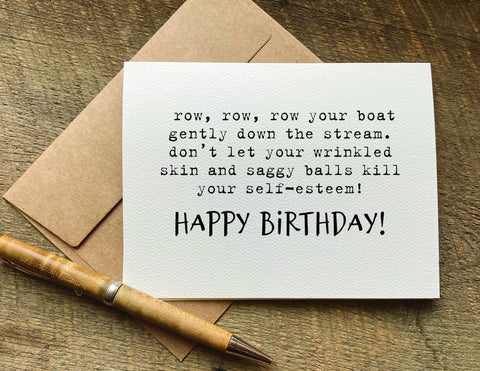 row, row, row your boat
gently down the stream.
don't let your wrinkled
skin and saggy balls kill
your self-esteem!
HAPPY BiRTHDAY!